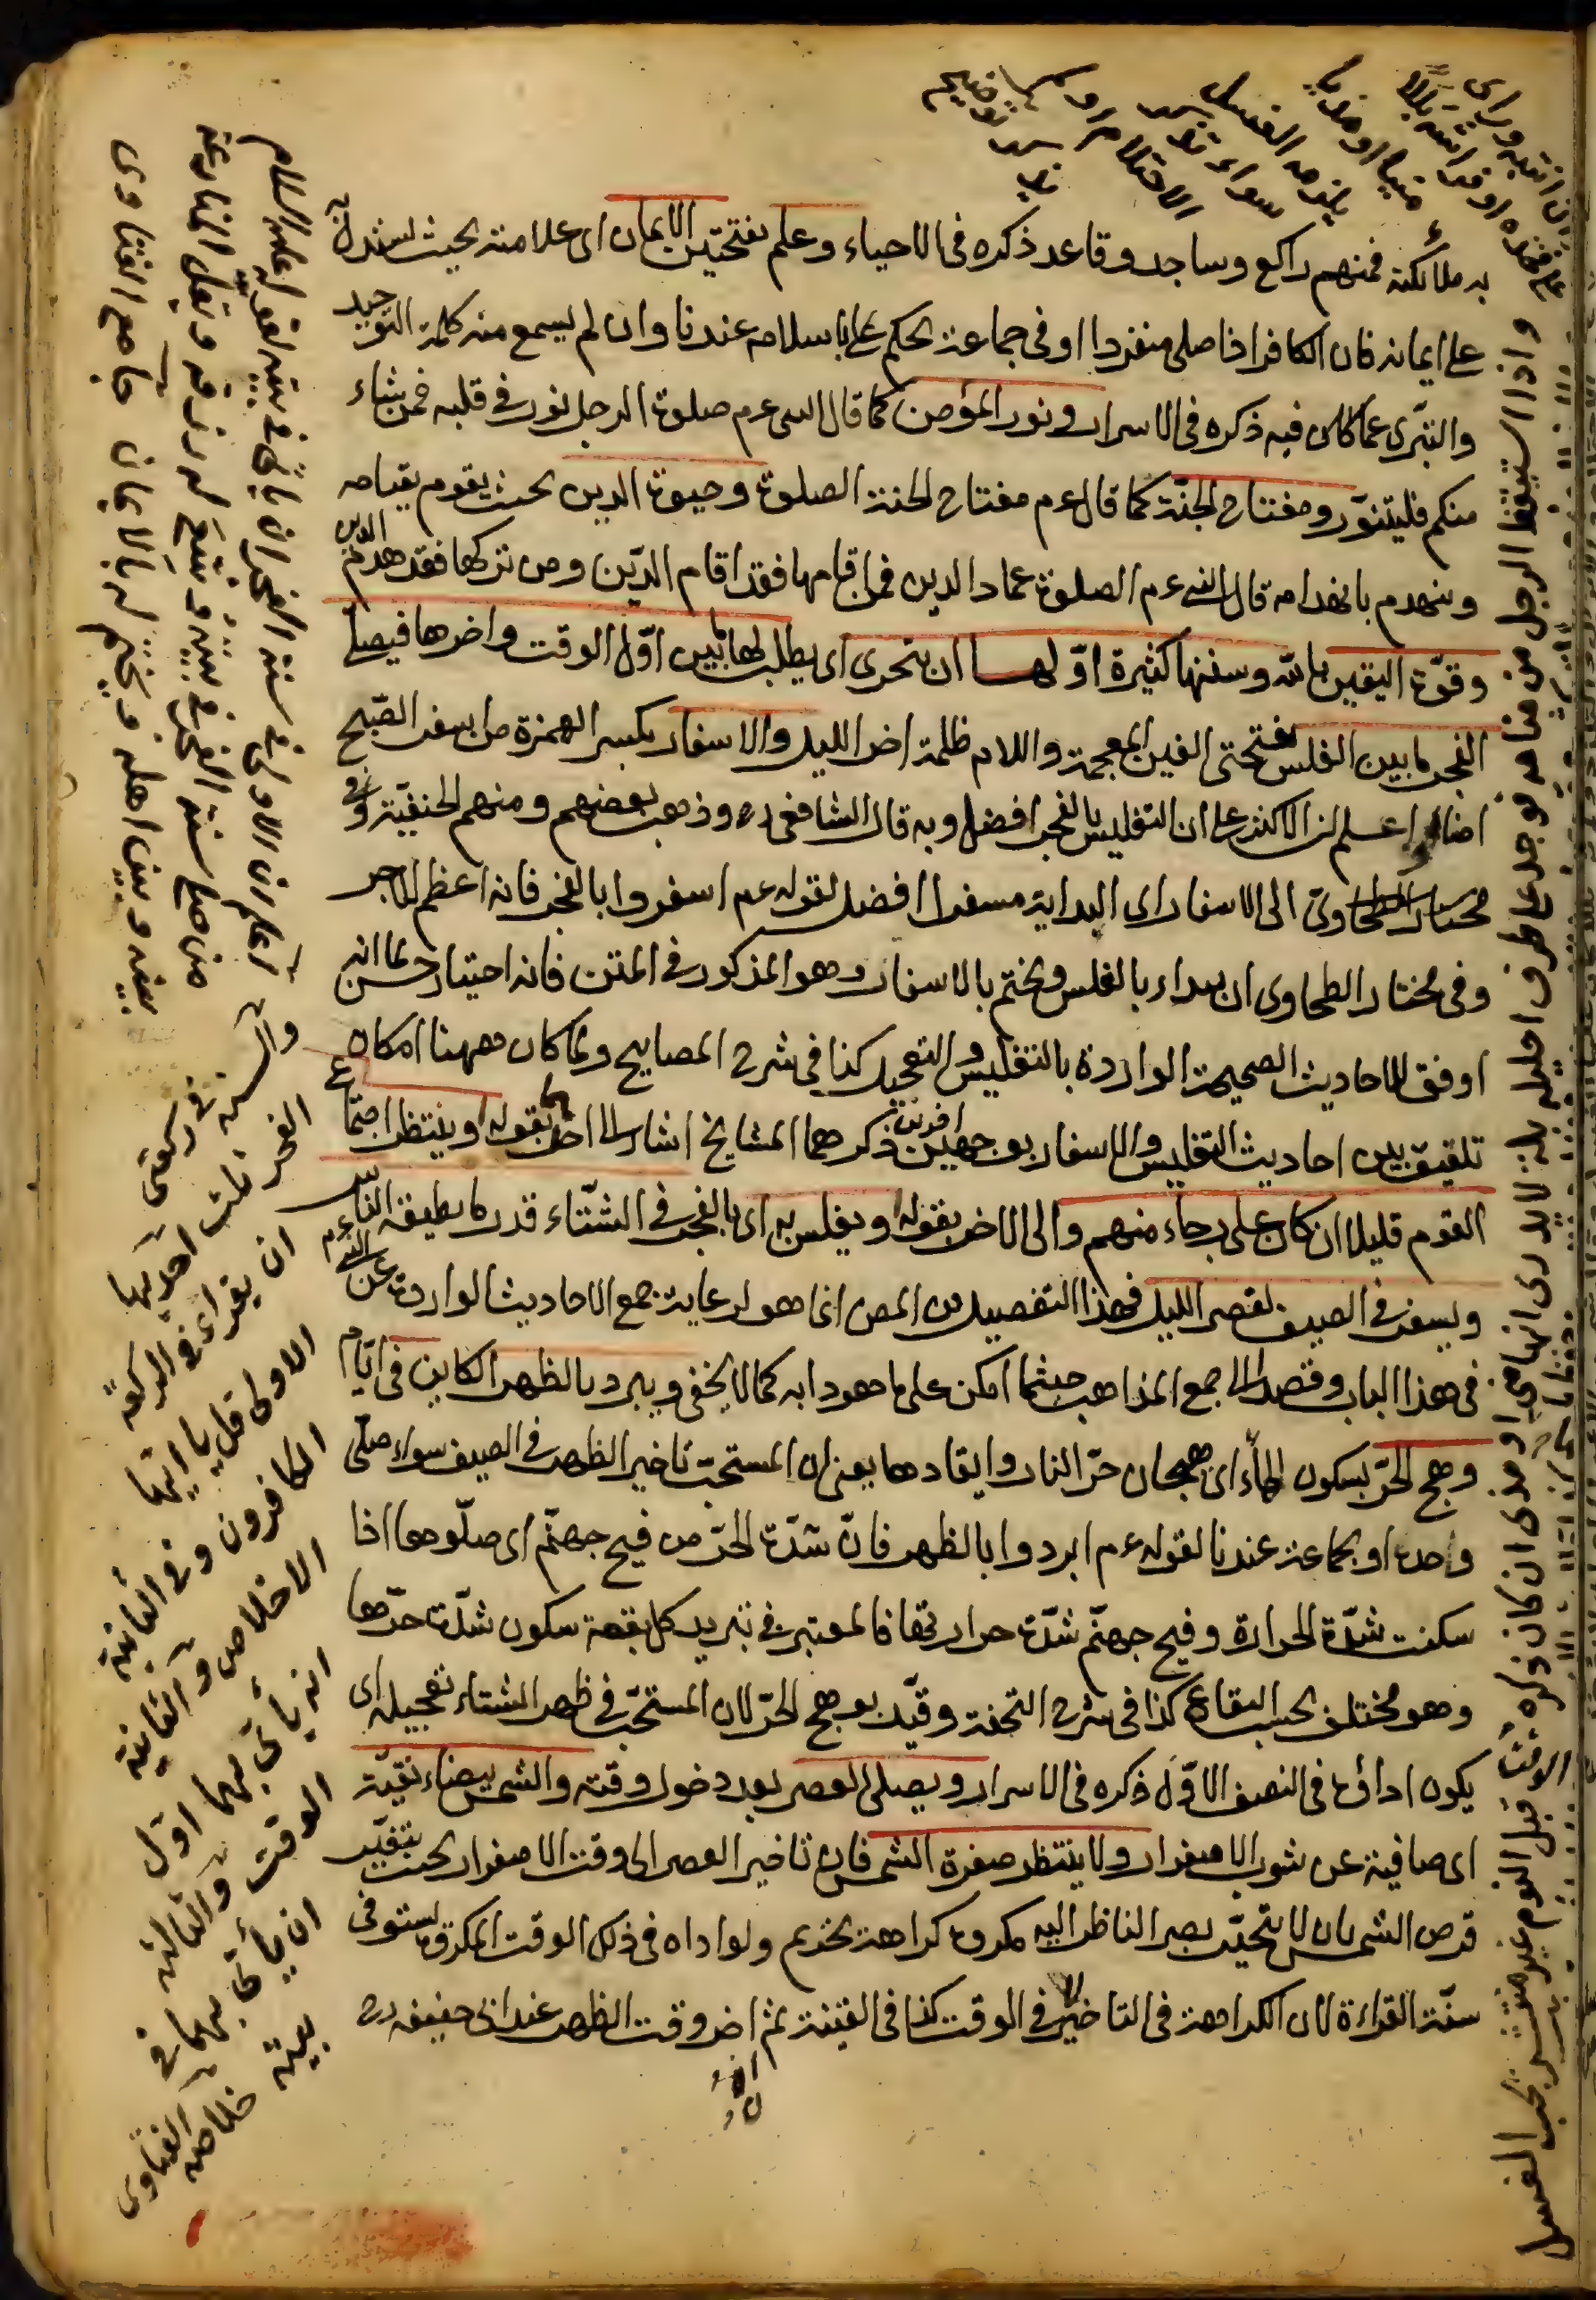 به ملائكته فمنهم راكع وساجد وقاعد ذكره فى الاحياء وعلم بفتحتين الايمان اى علامته بحيث يستدل به
على ايمانه فان الكافر اذا صلى منفردا او فى جماعة يحكم عليه باسلامه عندنا وان لم يسمع منه كلمة التوحيد
والتبرى عما كان فيه ذكره فى الاسرار ونور المؤمن كما قال النبى عم صلوة الرجل نور فى قلبه فمن شاء
منكم فليتنوّر ومفتاح الجنّة كما قال عم مفتاح الجنة الصلوة وحيوة الدين بحيث يقوم بقيامه
وينهدم بانهدامه قال النبى عم الصلوة عماد الدين فمن اقامها فقد اقام الدّين ومن تركها فقد هدم الدين
وقوّة اليقين بالله وسننها كثيرة اوّلها ان يتحرى اى يطلب لها ما بين اوّل الوقت واخرها فيصلى
الفجر ما بين الغلس بفتحتى الغين المعجمة واللام ظلمة اخر الليل والاسفار بكسر الهمزة من اسفر الصّبح
اضاء اعلم ان الاكثر على ان التغليس بالفجر افضل وبه قال الشافعى رح وذهب بعضهم ومنهم الحنفيّة وفى
مختار الطحاوىّ الى الاسفار اى البداية مسفرا افضل لقوله عم اسفروا بالفجر فانه اعظم للاجر
وفى مختار الطحاوى ان يبداء بالغلس ويختم بالاسفار وهو المذكور فى المتن فانه اختيار حسن لما انه
اوفق للاحاديث الصحيحة الواردة بالتغليس والتعجيل كذا فى شرح المصابيح ولما كان ههنا امكان
تلفيق بين احاديث التغليس والاسفار بوجهين اخرين ذكرهما المشايخ اشار الى احدهما بقوله وينتظر اجتماع
القوم قليلا ان كان على رجاء منهم والى الاخر بقوله ويغلس به اى بالفجر فى الشتّاء قدر ما يطيقه الناس
ويسفر فى الصيف لقصر الليل فهذا التفصيل من المص انما هو لرعاية جمع الاحاديث الواردة عن النبى عم
فى هذا الباب وقصدا لجمع المذاهب حيثما امكن على ما هو دابه كما لا يخفى ويبرد بالظهر الكاين فى ايّام
وهج الحرّ بسكون الهاء اى هيجان حرّ النار وايقادها يعنى ان المستحبّ تاخير الظهر فى الصيف سواء صلّى
واحدا او بجماعة عندنا لقوله عم ابردوا بالظهر فانّ شدّة الحرّ من فيح جهنّم اى صلّوها اذا
سكنت شدّة الحرارة وفيح جهنّم شدّة حرارتها فالمعتبر فى تبريد كل بقعة سكون شدّة حرّها
وهو مختلف بحسب البقاع كذا فى شرح التحفة وقيّد بوهج الحرّ لان المستحبّ فى ظهر الشتاء تعجيله اى
يكون اداؤه فى النصف الاوّل ذكره فى الاسرار ويصلى العصر بعد دخول وقته والشمس بيضاء نقيّة
اى صافية عن شوب الاصفرار ولا ينتظر صفرة الشمس فان تاخير العصر الى وقت الاصفرار بحيث يتغيّر
قرص الشمس بان لا يتحيّر بصر الناظر اليه مكروه كراهة تحريم ولو اداه فى ذلك الوقت المكروه يستوفى
سنّة القراءة لان الكراهة فى التاخير لا فى الوقت كذا فى القنية ثم اخر وقت الظهر عند ابى حنيفة رح
واذا استيقظ الرجل من منامه فوجد على طرف احليله بلة لا يدرى انها منى او مذى ان كان ذكره
قبل النوم غير منتشر يجب الغسل
والسنة فى ركعتى
الفجر ثلث احديها
ان يقراء فى الركعة
الاولى قل يا ايها
الكافرون وفى الثانية
الاخلاص والثانية
ان يأتى بهما اول
الوقت والثالثة
ان يأتى بهما فى
بيته خلاصة الفتاوى
من صلى سنة الفجر فى بيته
بينه وبين اهله ويختم له بالايمان جامع الفتاوى